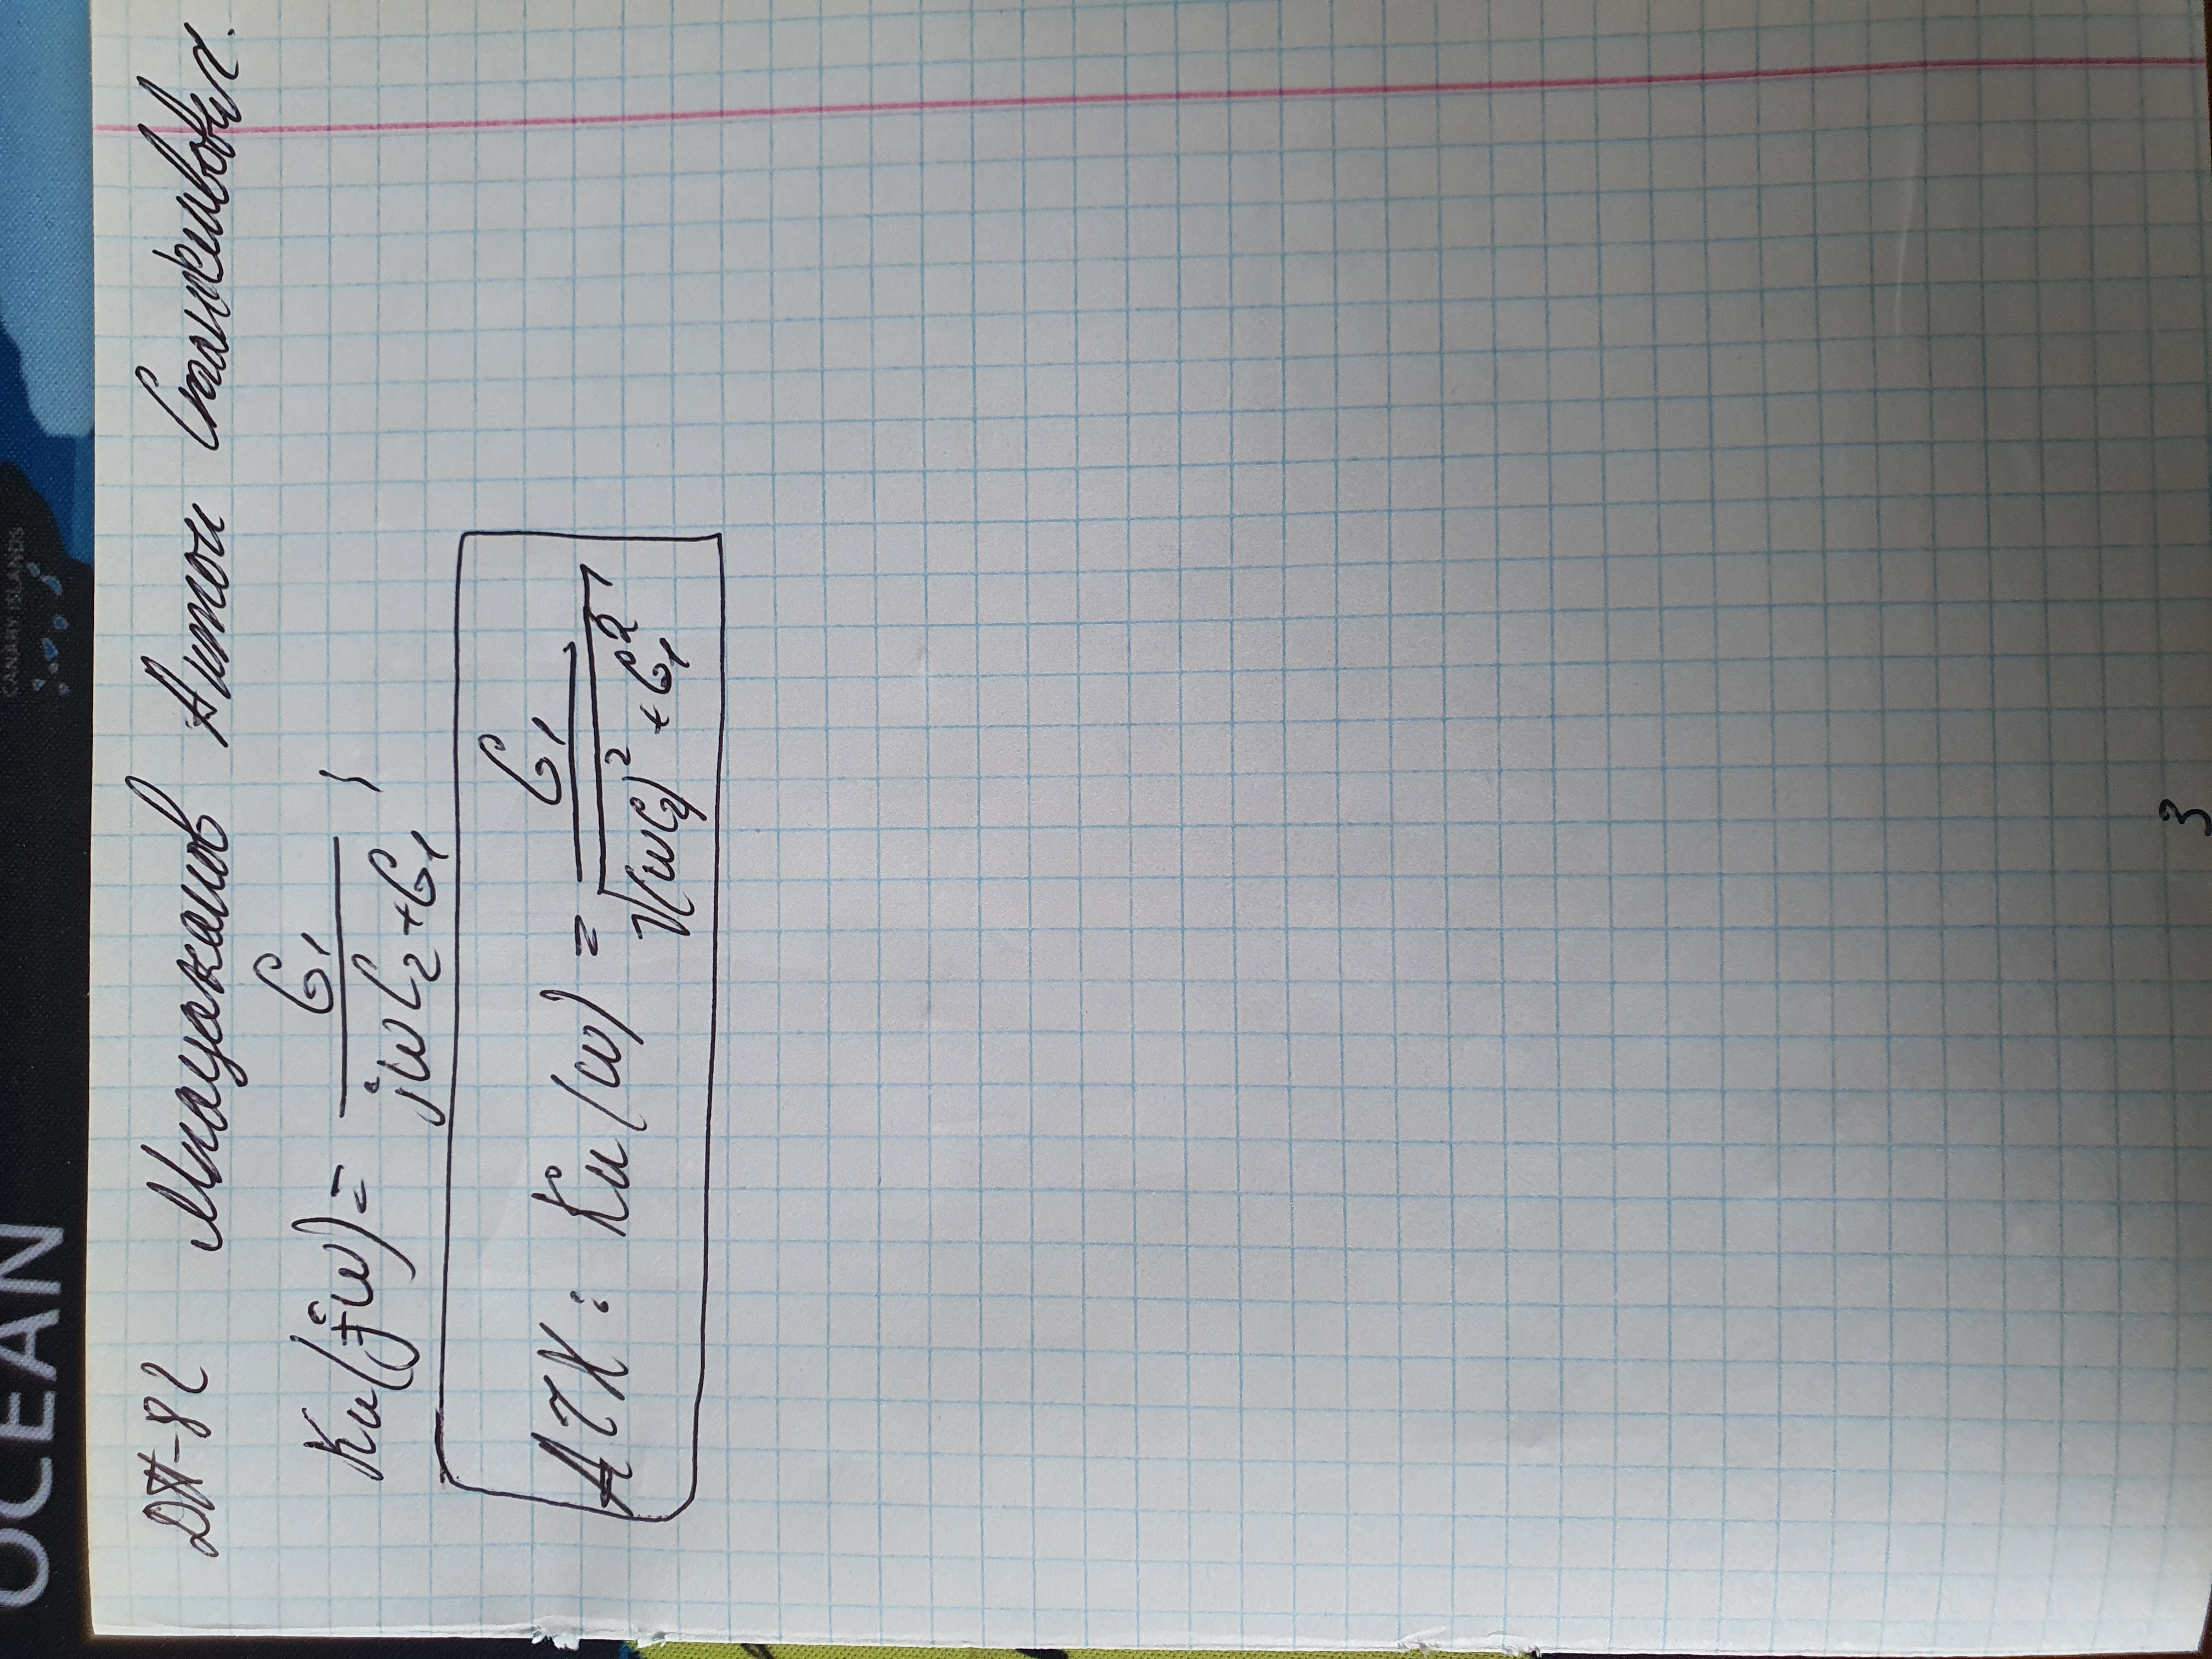 OCEAN
CANARY ISLANDS
ДП-82 Мнацаканов Антон Станіславович.
Ku(jω) = G₁ / (jωC₂+G₁) ;
АЧХ : Ku(ω) = G₁ / √((ωC₂)² + G₁²)
3